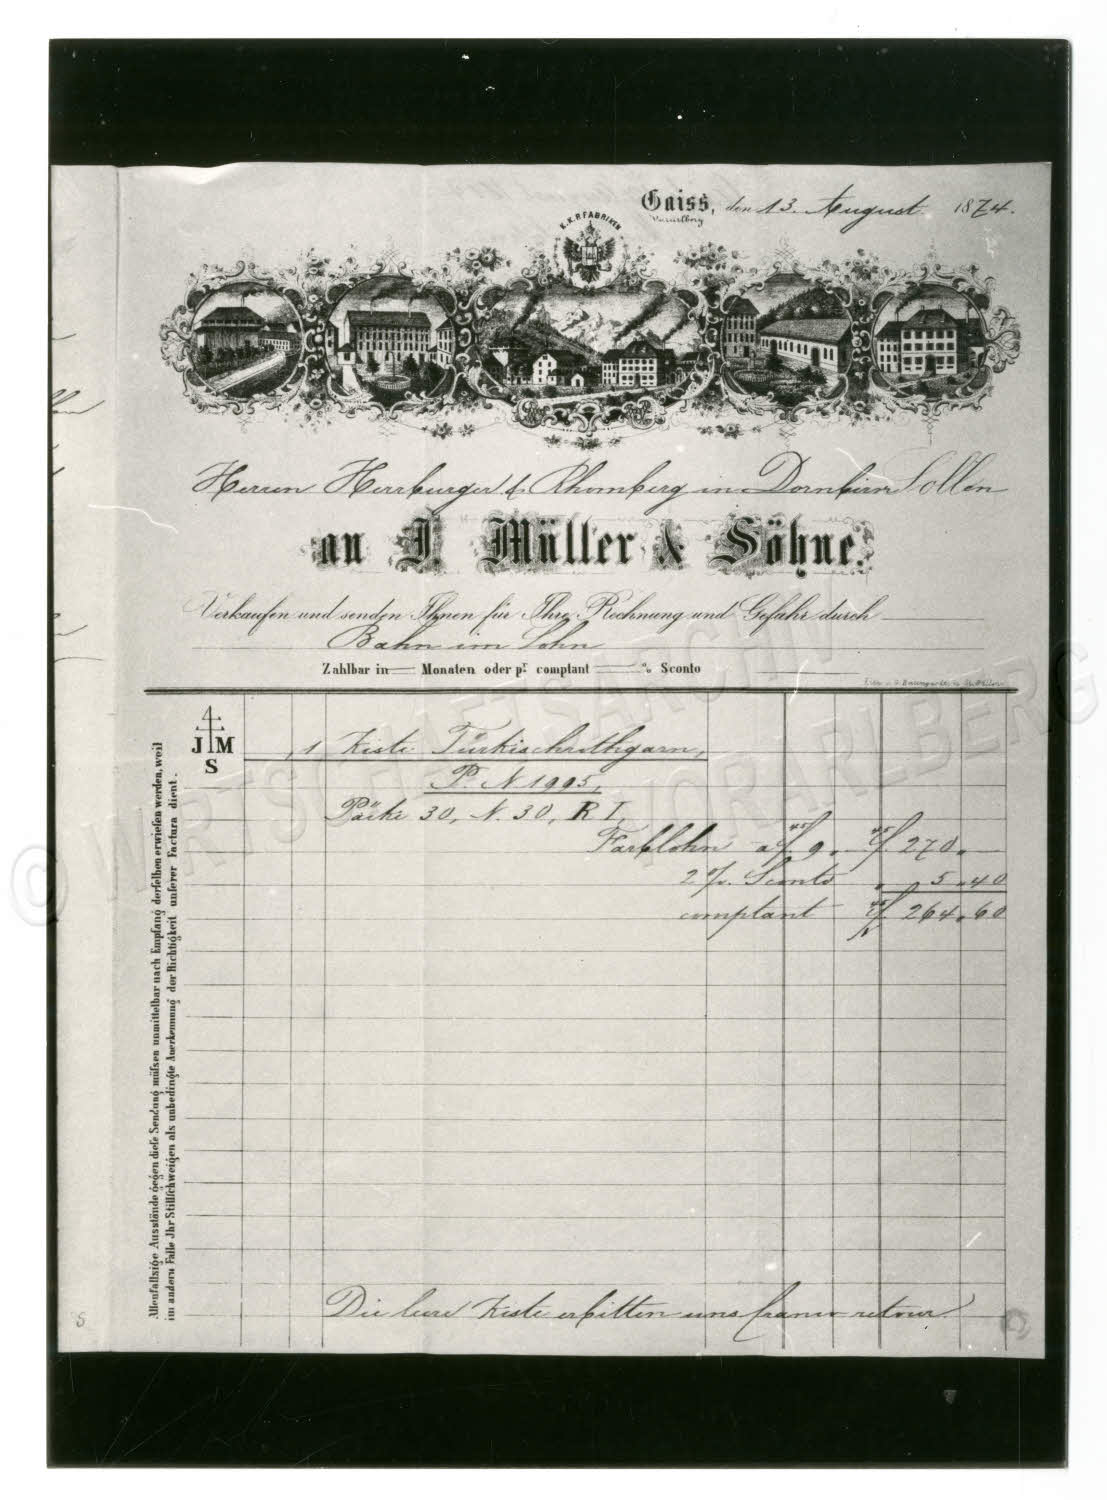 Gaiss, den 13. August 1874.
Vorarlberg
K.K.P. FABRIKEN
Herren Herrburger & Rhomberg in Dornbirn Sollen
an J. Müller & Söhne.
Verkaufen und senden Ihnen für Ihre Rechnung und Gefahr durch
Bahn im Lohn
Zahlbar in Monaten oder pr comptant % Sconto
4
J M
S
1 Kiste Türkischrothgarn,
P. N 1995,
Päcke 30, N. 30, R I,
Farblohn a f 9 . — f. 270 . —
2 %. Sconto " 5 . 40
comptant f. 264 . 60
Die leere Kiste erbitten uns franco retour.
Allenfallsige Ausstände gegen diese Sendung müssen unmittelbar nach Empfang derselben erwiesen werden, weil
im andern Falle Ihr Stillschweigen als unbedingte Anerkennung der Richtigkeit unserer Factura dient.
© WIRTSCHAFTSARCHIV VORARLBERG